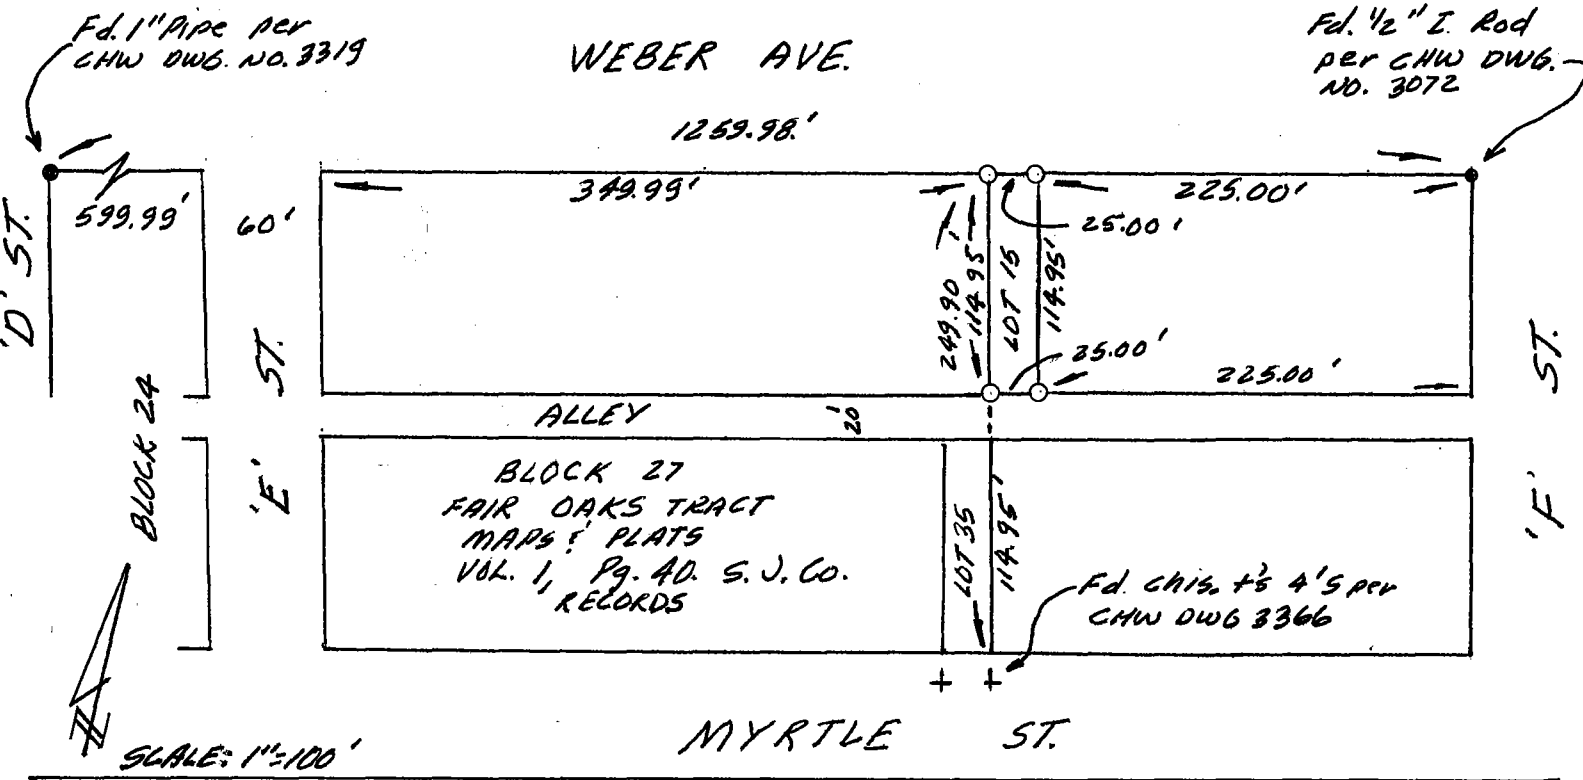 Fd. 1" Pipe per
CHW DWG. NO. 3319
WEBER AVE.
Fd. 1/2" I. Rod
per CHW DWG.
NO. 3072
1259.98.'
599.99'
60'
349.99'
225.00'
25.00'
'D' ST.
249.90'
114.95'
LOT 15
114.95'
25.00'
225.00'
'E' ST.
'F' ST.
BLOCK 24
ALLEY
20'
BLOCK 27
FAIR OAKS TRACT
MAPS & PLATS
VOL. 1, Pg. 40. S. J. Co.
RECORDS
LOT 35
114.95'
Fd. chis. +'s 4'S per
CHW DWG 3366
N
MYRTLE ST.
SCALE: 1"=100'